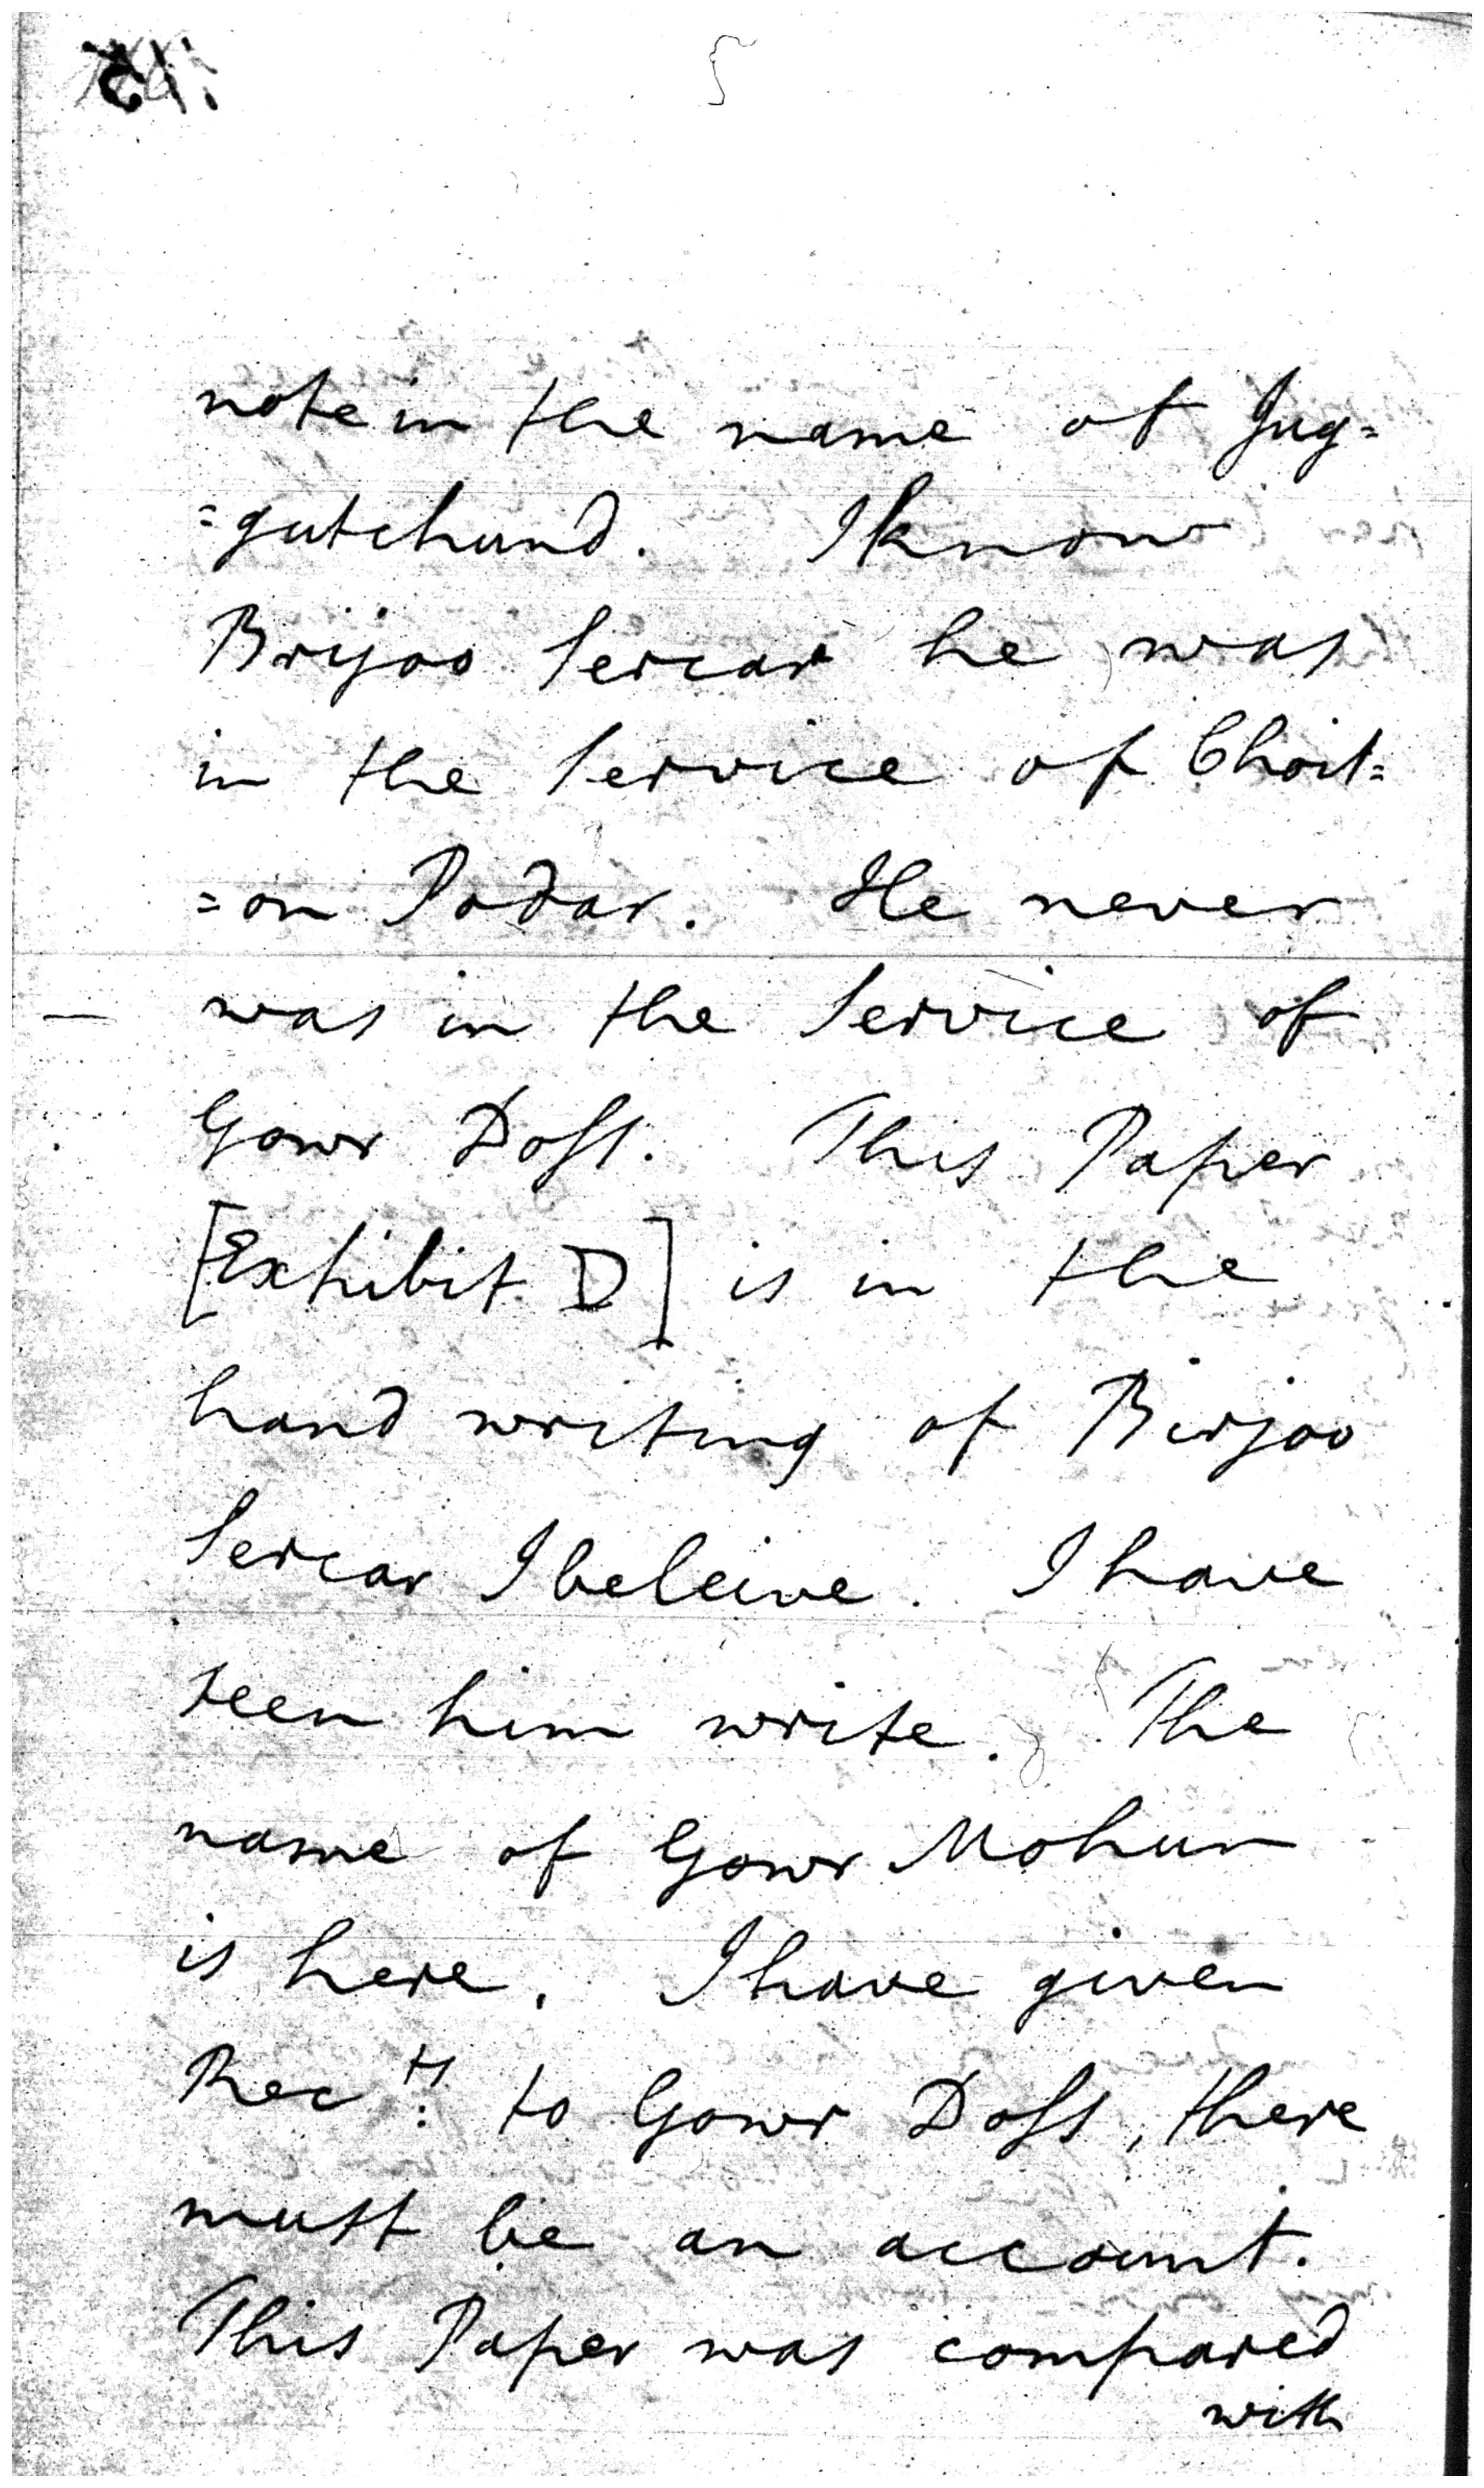 5
note in the name of Jug=
=gutchund. I know
Brijoo Sercar he was
in the Service of Choit=
=on Podar. He never
was in the Service of
Gowr Doss. This Paper
[Exhibit D] is in the
hand writing of Birjoo
Sercar I beleive. I have
seen him write. The
name of Gowr Mohun
is here. I have given
Rec.ts to Gowr Doss, there
must be an account.
This Paper was compared
with